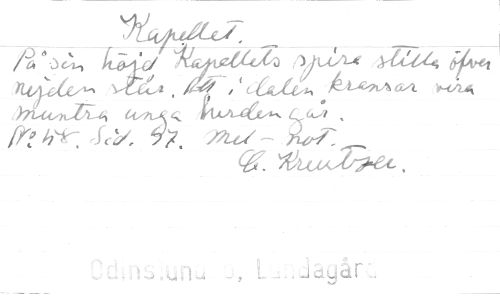 Kapellet.
På sin höjd Kapellets spira stilla öfver
nejden står. Att i dalen kransar vira
muntra unga herden går.
No 48. Sid. 97. mel – not.
C. Kreutzer.
Odinslund 6, Landagård